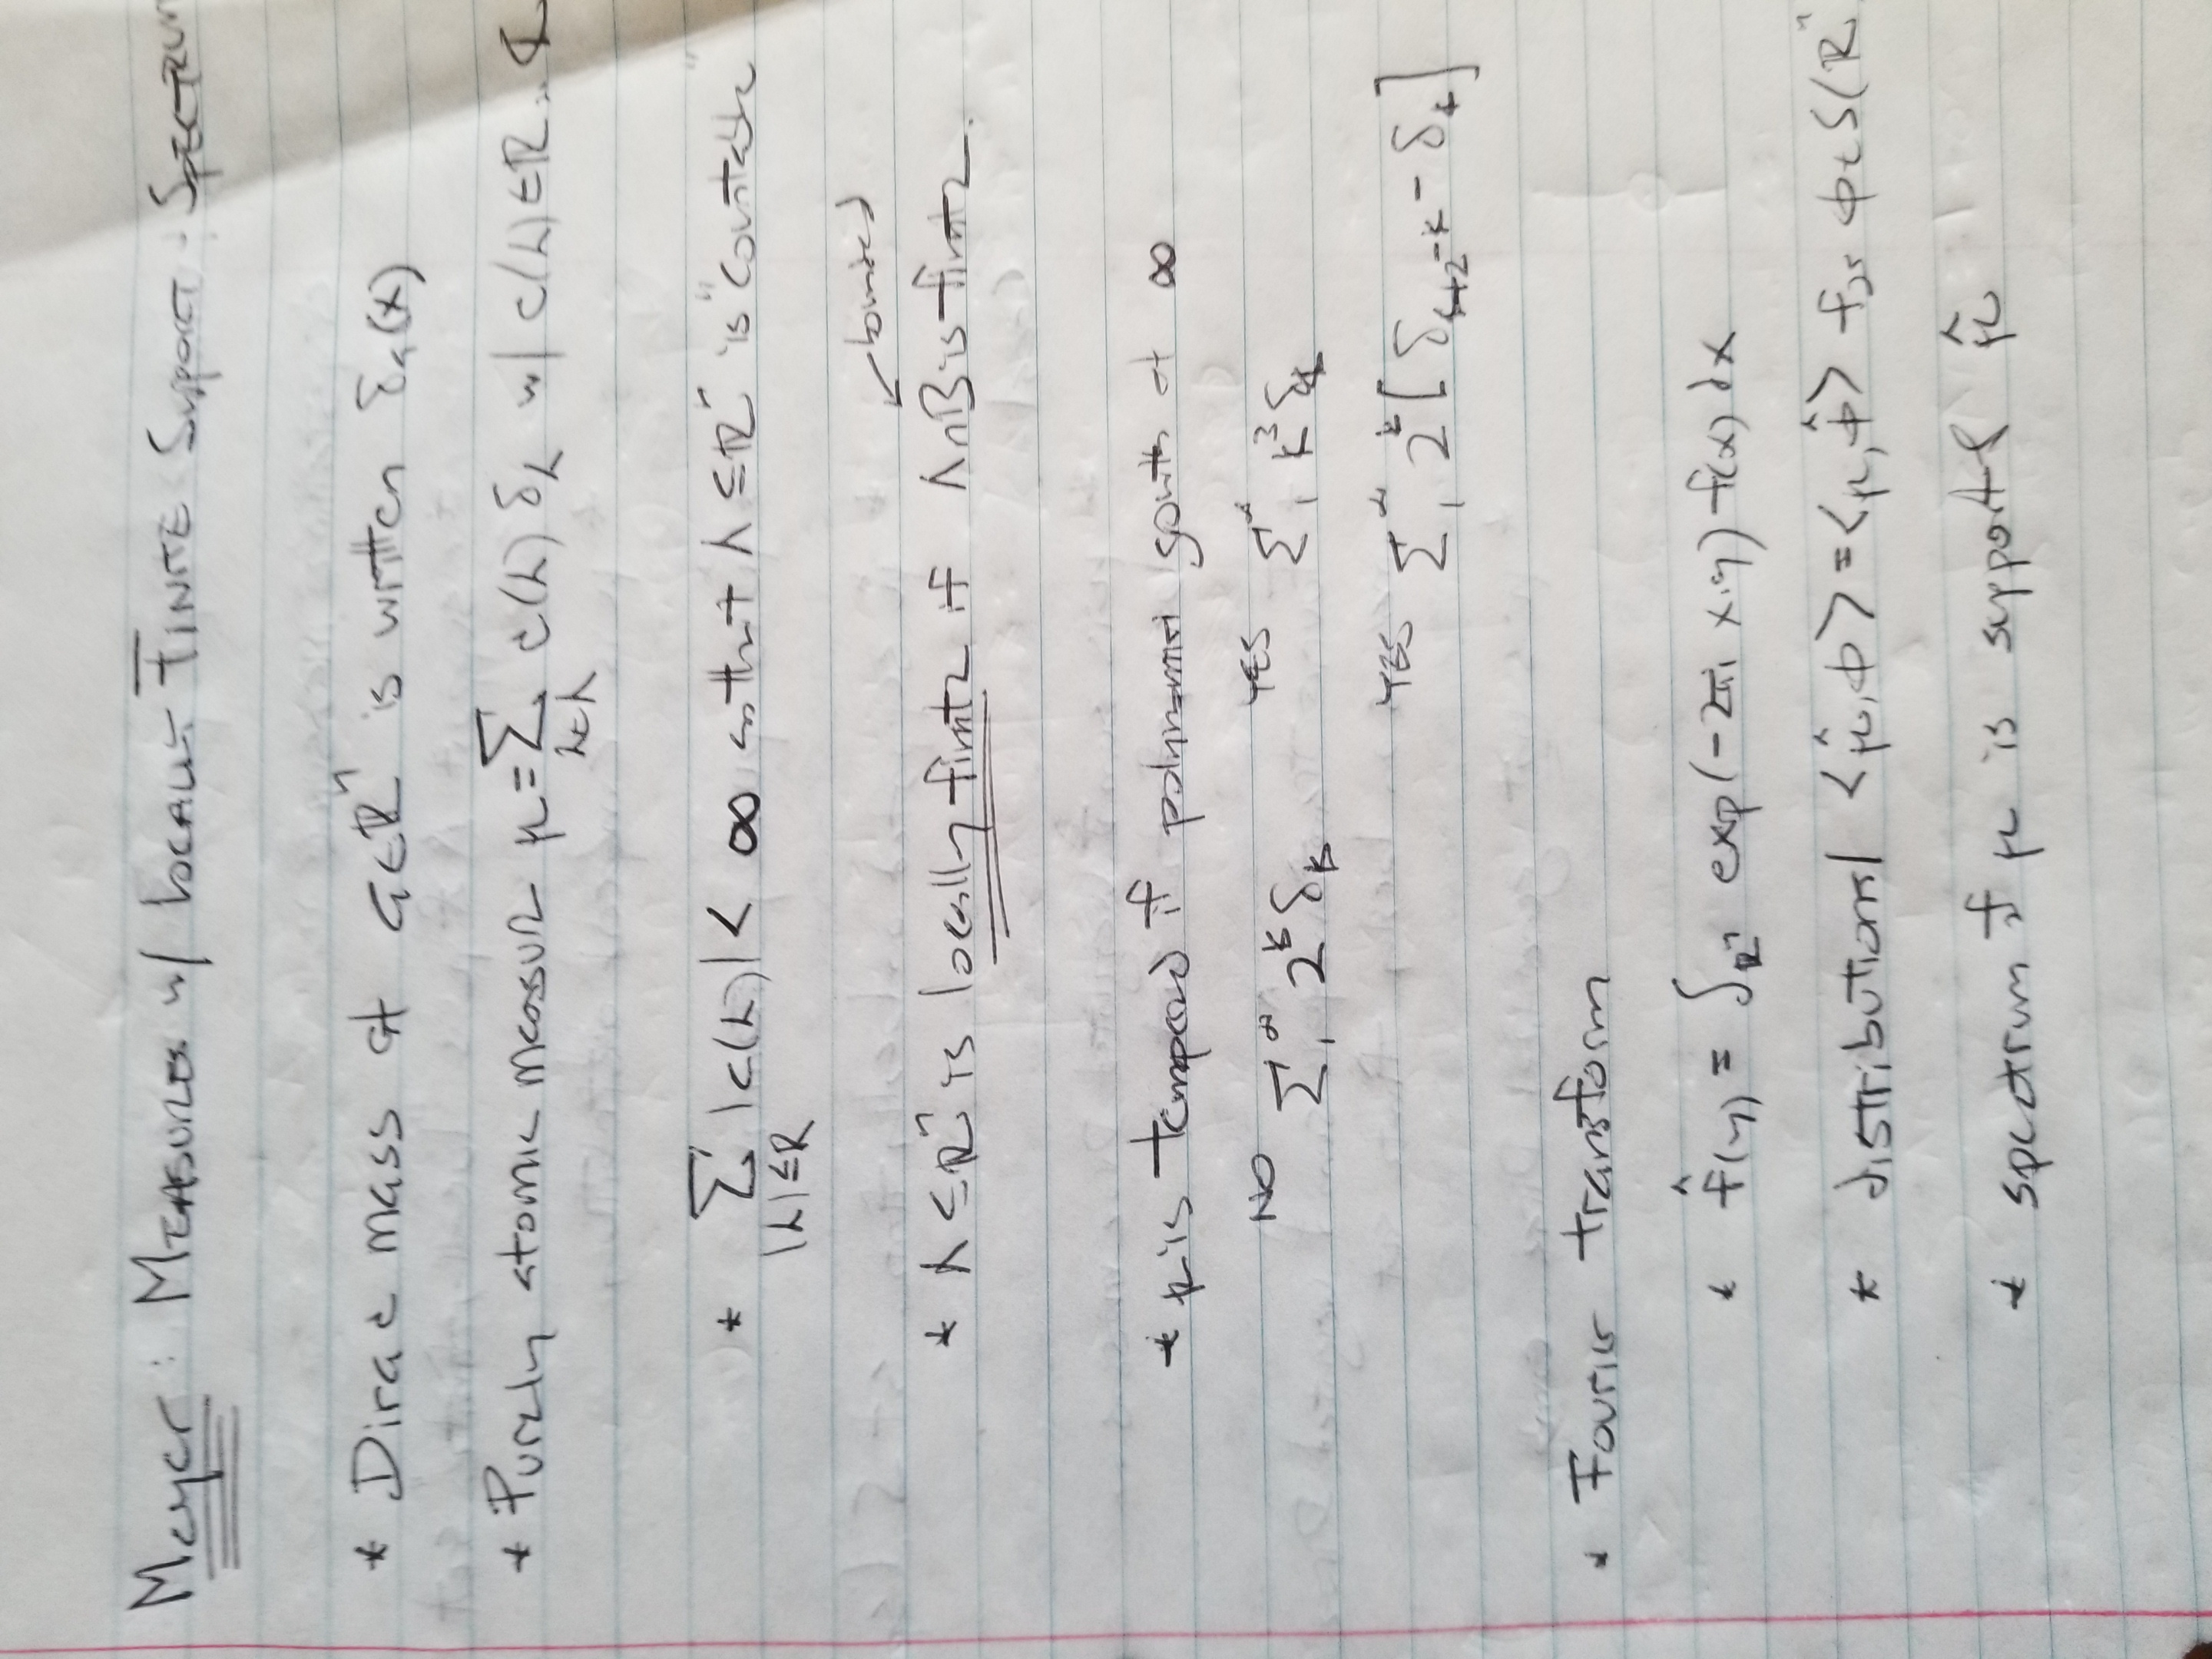 Meyer: MEASURES w/ LOCALLY FINITE Support & SPECTRUM
* Dirac mass at a∈ℝⁿ is written δₐ(x)
* Purely atomic measure μ = Σ_{λ∈Λ} c(λ) δ_λ w/ c(λ)∈ℝ ℂ
* Σ_{|λ|≤R} |c(λ)| < ∞ so that Λ⊆ℝⁿ is "countable"
bounded
* Λ⊆ℝⁿ is locally finite if Λ∩B is finite.
* μ is tempered if polynomial growth at ∞
NO Σ₁^∞ 2^k δ_k YES Σ₁^∞ k³ δ_k
YES Σ₁^∞ 2^k [δ_{k+2^{-k}} - δ_k]
* Fourier transform
* f̂(y) = ∫_{ℝⁿ} exp(-2πi x·y) f(x) dx
* distributional <μ̂, φ> = <μ, φ̂> for φ∈S(ℝⁿ
* spectrum of μ is support of μ̂